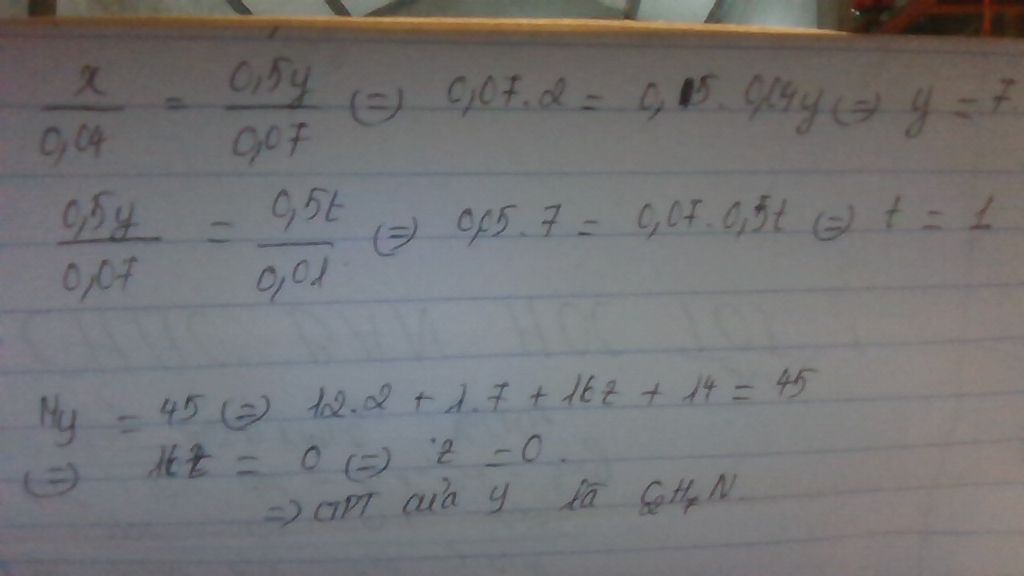 x/0,04 = 0,5y/0,07 (=) 0,07.2 = 0,5. 0,04y (=) y = 7
0,5y/0,07 = 0,5t/0,01 (=) 0,05.7 = 0,07.0,5t (=) t = 1
My = 45 (=) 12.2 + 1.7 + 16z + 14 = 45
(=) 16z = 0 (=) z = 0.
=) CTPT của y là C2H7N